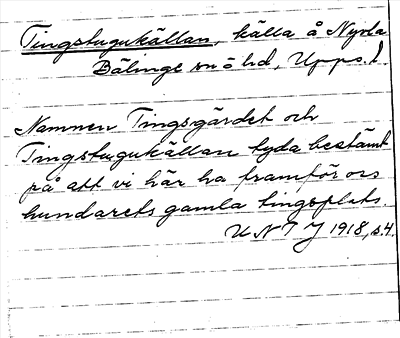 Tingstugukällan, källa å Nyvla
Bälinge snö hd, Upps. l.
Namnen Tingsgärdet och
Tingstugukällan tyda bestämt
på att vi här ha framför oss
hundarets gamla tingsplats.
UNT J 1918, s. 4.